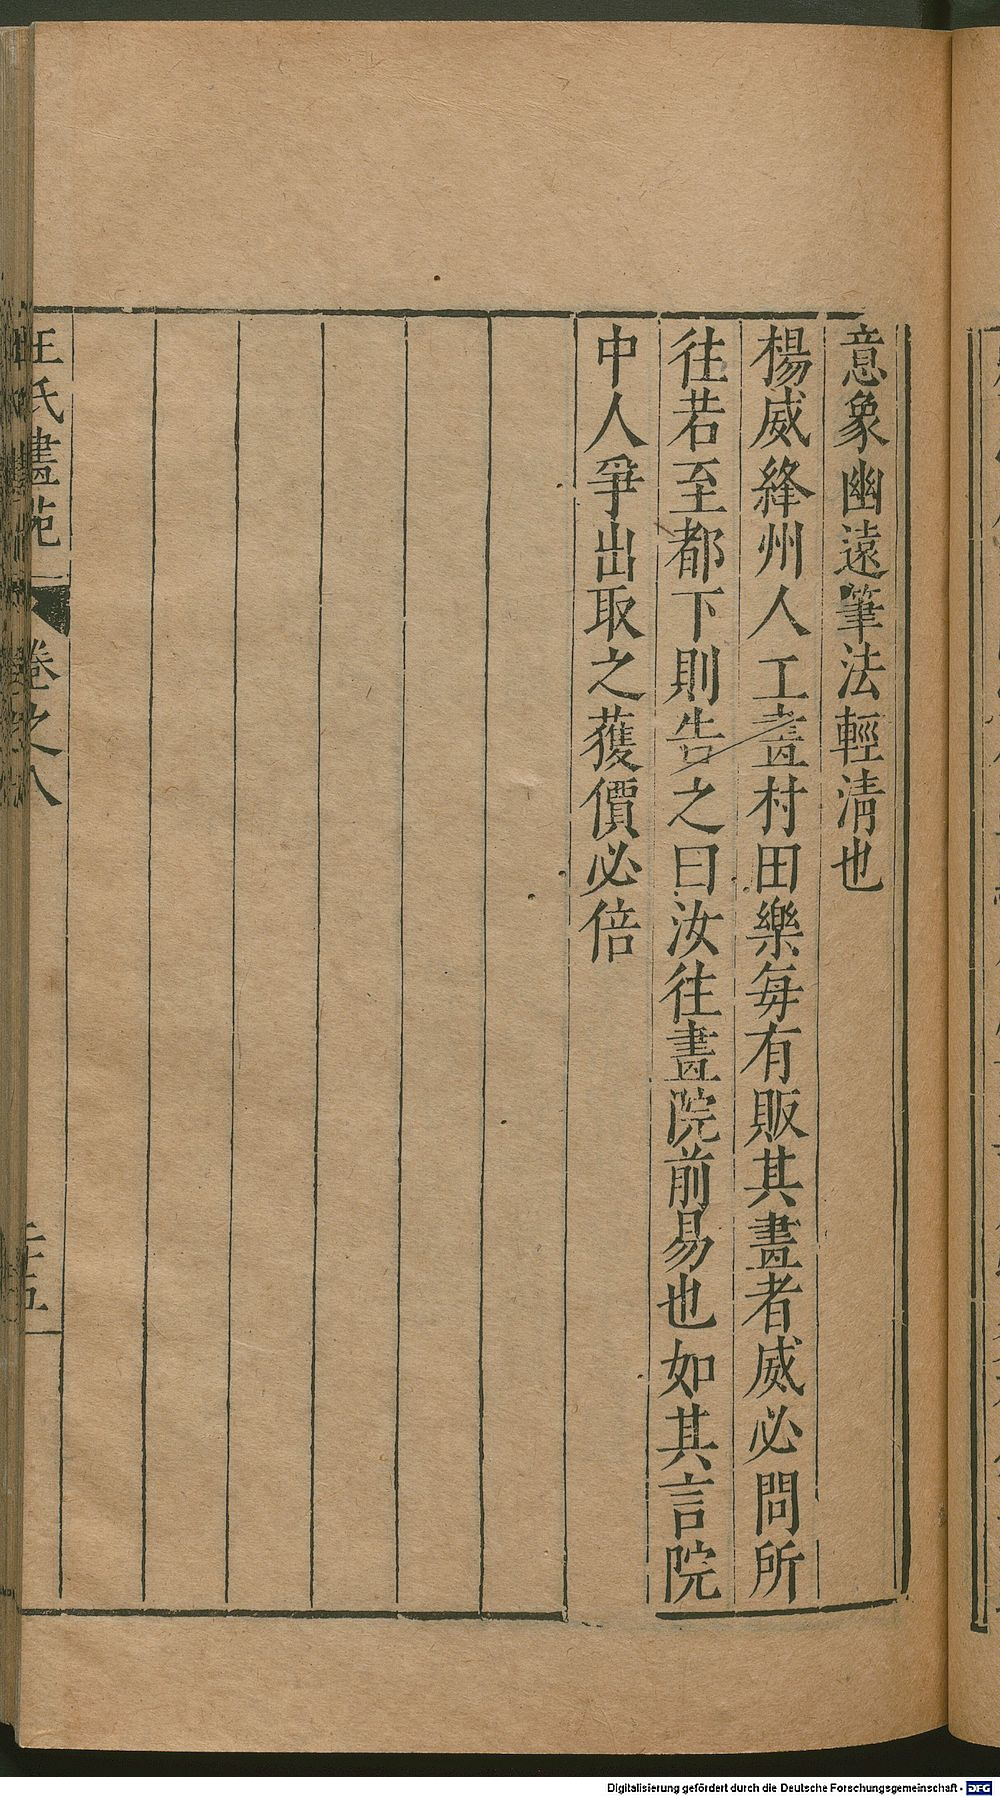 意象幽遠筆法輕清也
楊威絳州人工畫村田樂每有販其畫者威必問所
往若至都下則告之曰汝往畫院前易也如其言院
中人爭出取之獲價必倍
王氏畫苑
卷之八
Digitalisierung gefördert durch die Deutsche Forschungsgemeinschaft - DFG